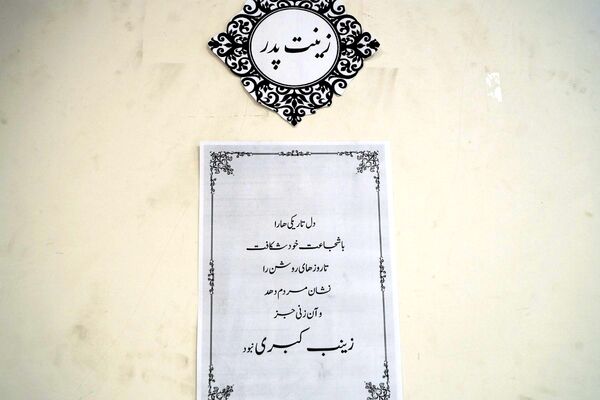 زینت پدر
دل تاریکی هارا
با شجاعت خود شکافت
تا روزهای روشن را
نشان مردم دهد
و آن زنی جز
زینب کبری نبود